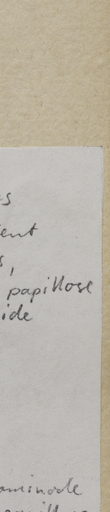 s
ent
s,
papillose
ide
aminode